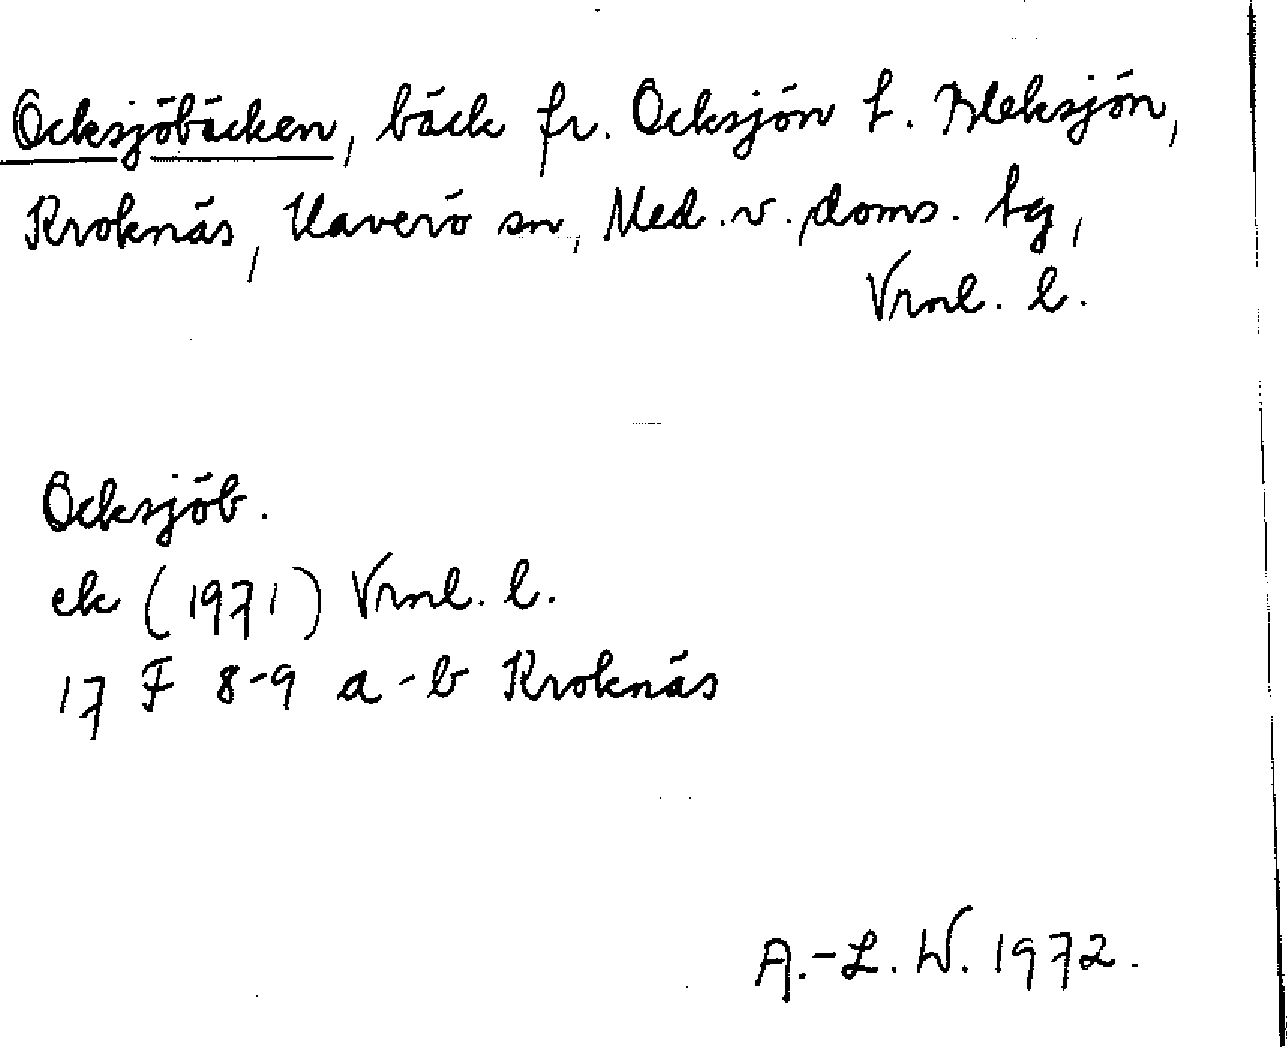 Ocksjöbäcken, bäck fr. Ocksjön t. Bleksjön,
Kroknäs, Haverö sn, Med. v. doms. tg,
Vrnl. l.
Ocksjöb.
ek (1971) Vrnl. l.
17 F 8-9 a-b Kroknäs
A.-L. W. 1972.